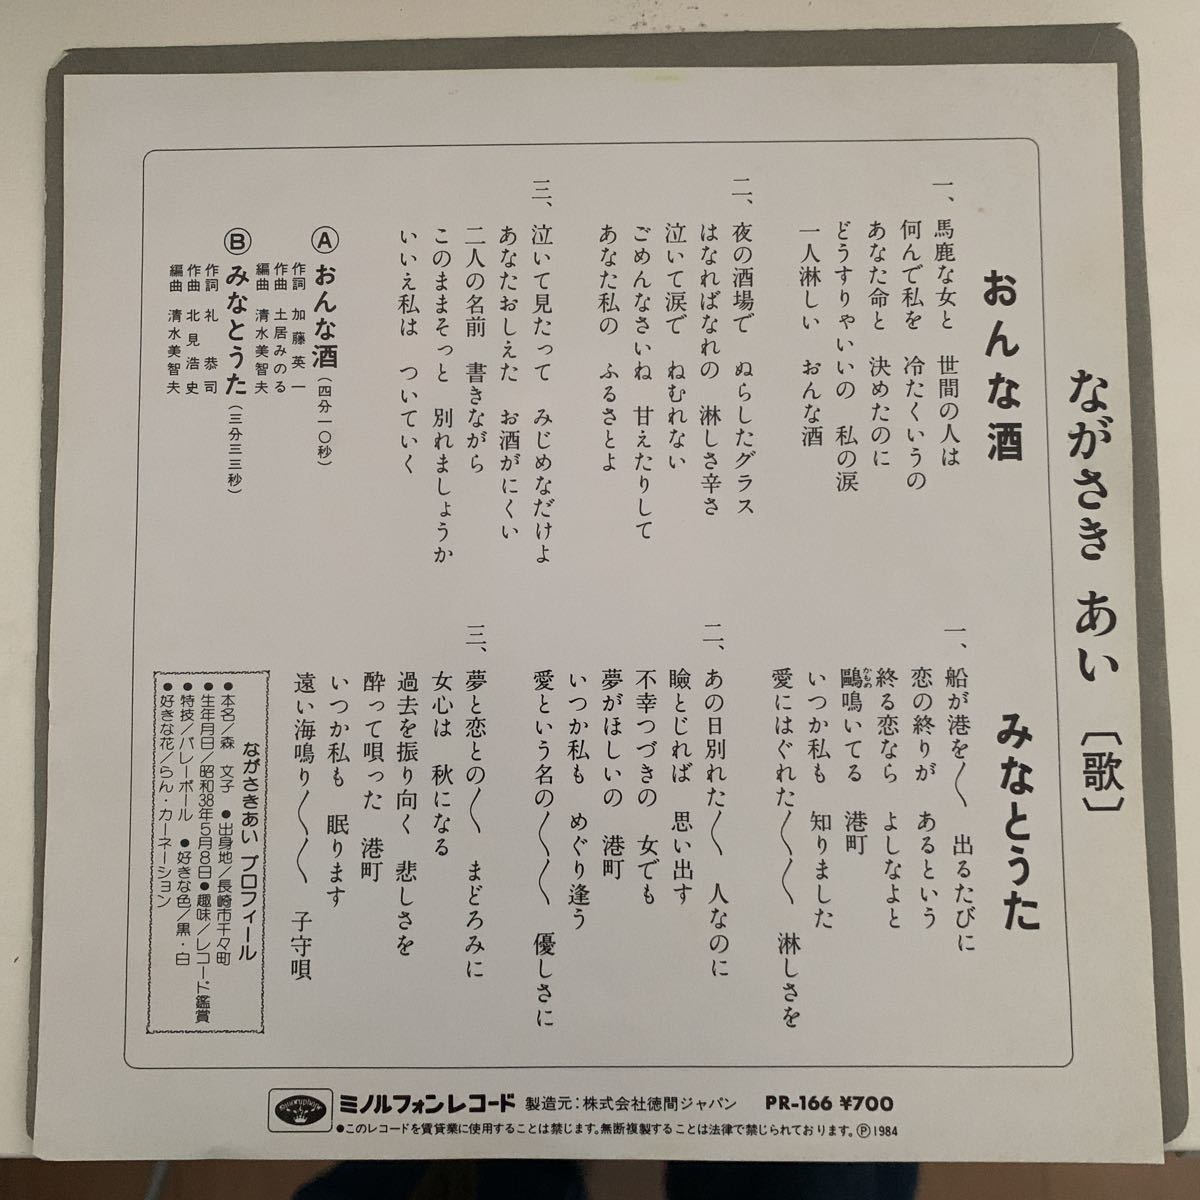 ながさき あい〔歌〕
おんな酒
一、馬鹿な女と 世間の人は
何んで私を 冷たくいうの
あなた命と 決めたのに
どうすりゃいいの 私の涙
一人淋しい おんな酒
二、夜の酒場で ぬらしたグラス
はなればなれの 淋しさ辛さ
泣いて涙で ねむれない
ごめんなさいね 甘えたりして
あなた私の ふるさとよ
三、泣いて見たって みじめなだけよ
あなたおしえた お酒がにくい
二人の名前 書きながら
このままそっと 別れましょうか
いいえ私は ついていく
Ⓐおんな酒(四分一〇秒)
作詞 加藤英一
作曲 土居みのる
編曲 清水美智夫
Ⓑみなとうた(三分三三秒)
作詞 礼恭司
作曲 北見浩史
編曲 清水美智夫
みなとうた
一、船が港を〱 出るたびに
恋の終りが あるという
終る恋なら よしなよと
鷗鳴いてる 港町
かもめ
いつか私も 知りました
愛にはぐれた〱〱 淋しさを
二、あの日別れた〱 人なのに
瞼とじれば 思い出す
不幸つづきの 女でも
夢がほしいの 港町
いつか私も めぐり逢う
愛という名の〱〱 優しさに
三、夢と恋との〱 まどろみに
女心は 秋になる
過去を振り向く 悲しさを
酔って唄った 港町
いつか私も 眠ります
遠い海鳴り〱〱 子守唄
ながさきあい プロフィール
●本名/森 文子 ●出身地/長崎市千々町
●生年月日/昭和38年5月8日●趣味/レコード鑑賞
●特技/バレーボール ●好きな色/黒・白
●好きな花/らん・カーネーション
minoruphone
ミノルフォンレコード 製造元:株式会社徳間ジャパン PR-166 ¥700
●このレコードを賃貸業に使用することは禁じます。無断複製することは法律で禁じられております。Ⓟ1984